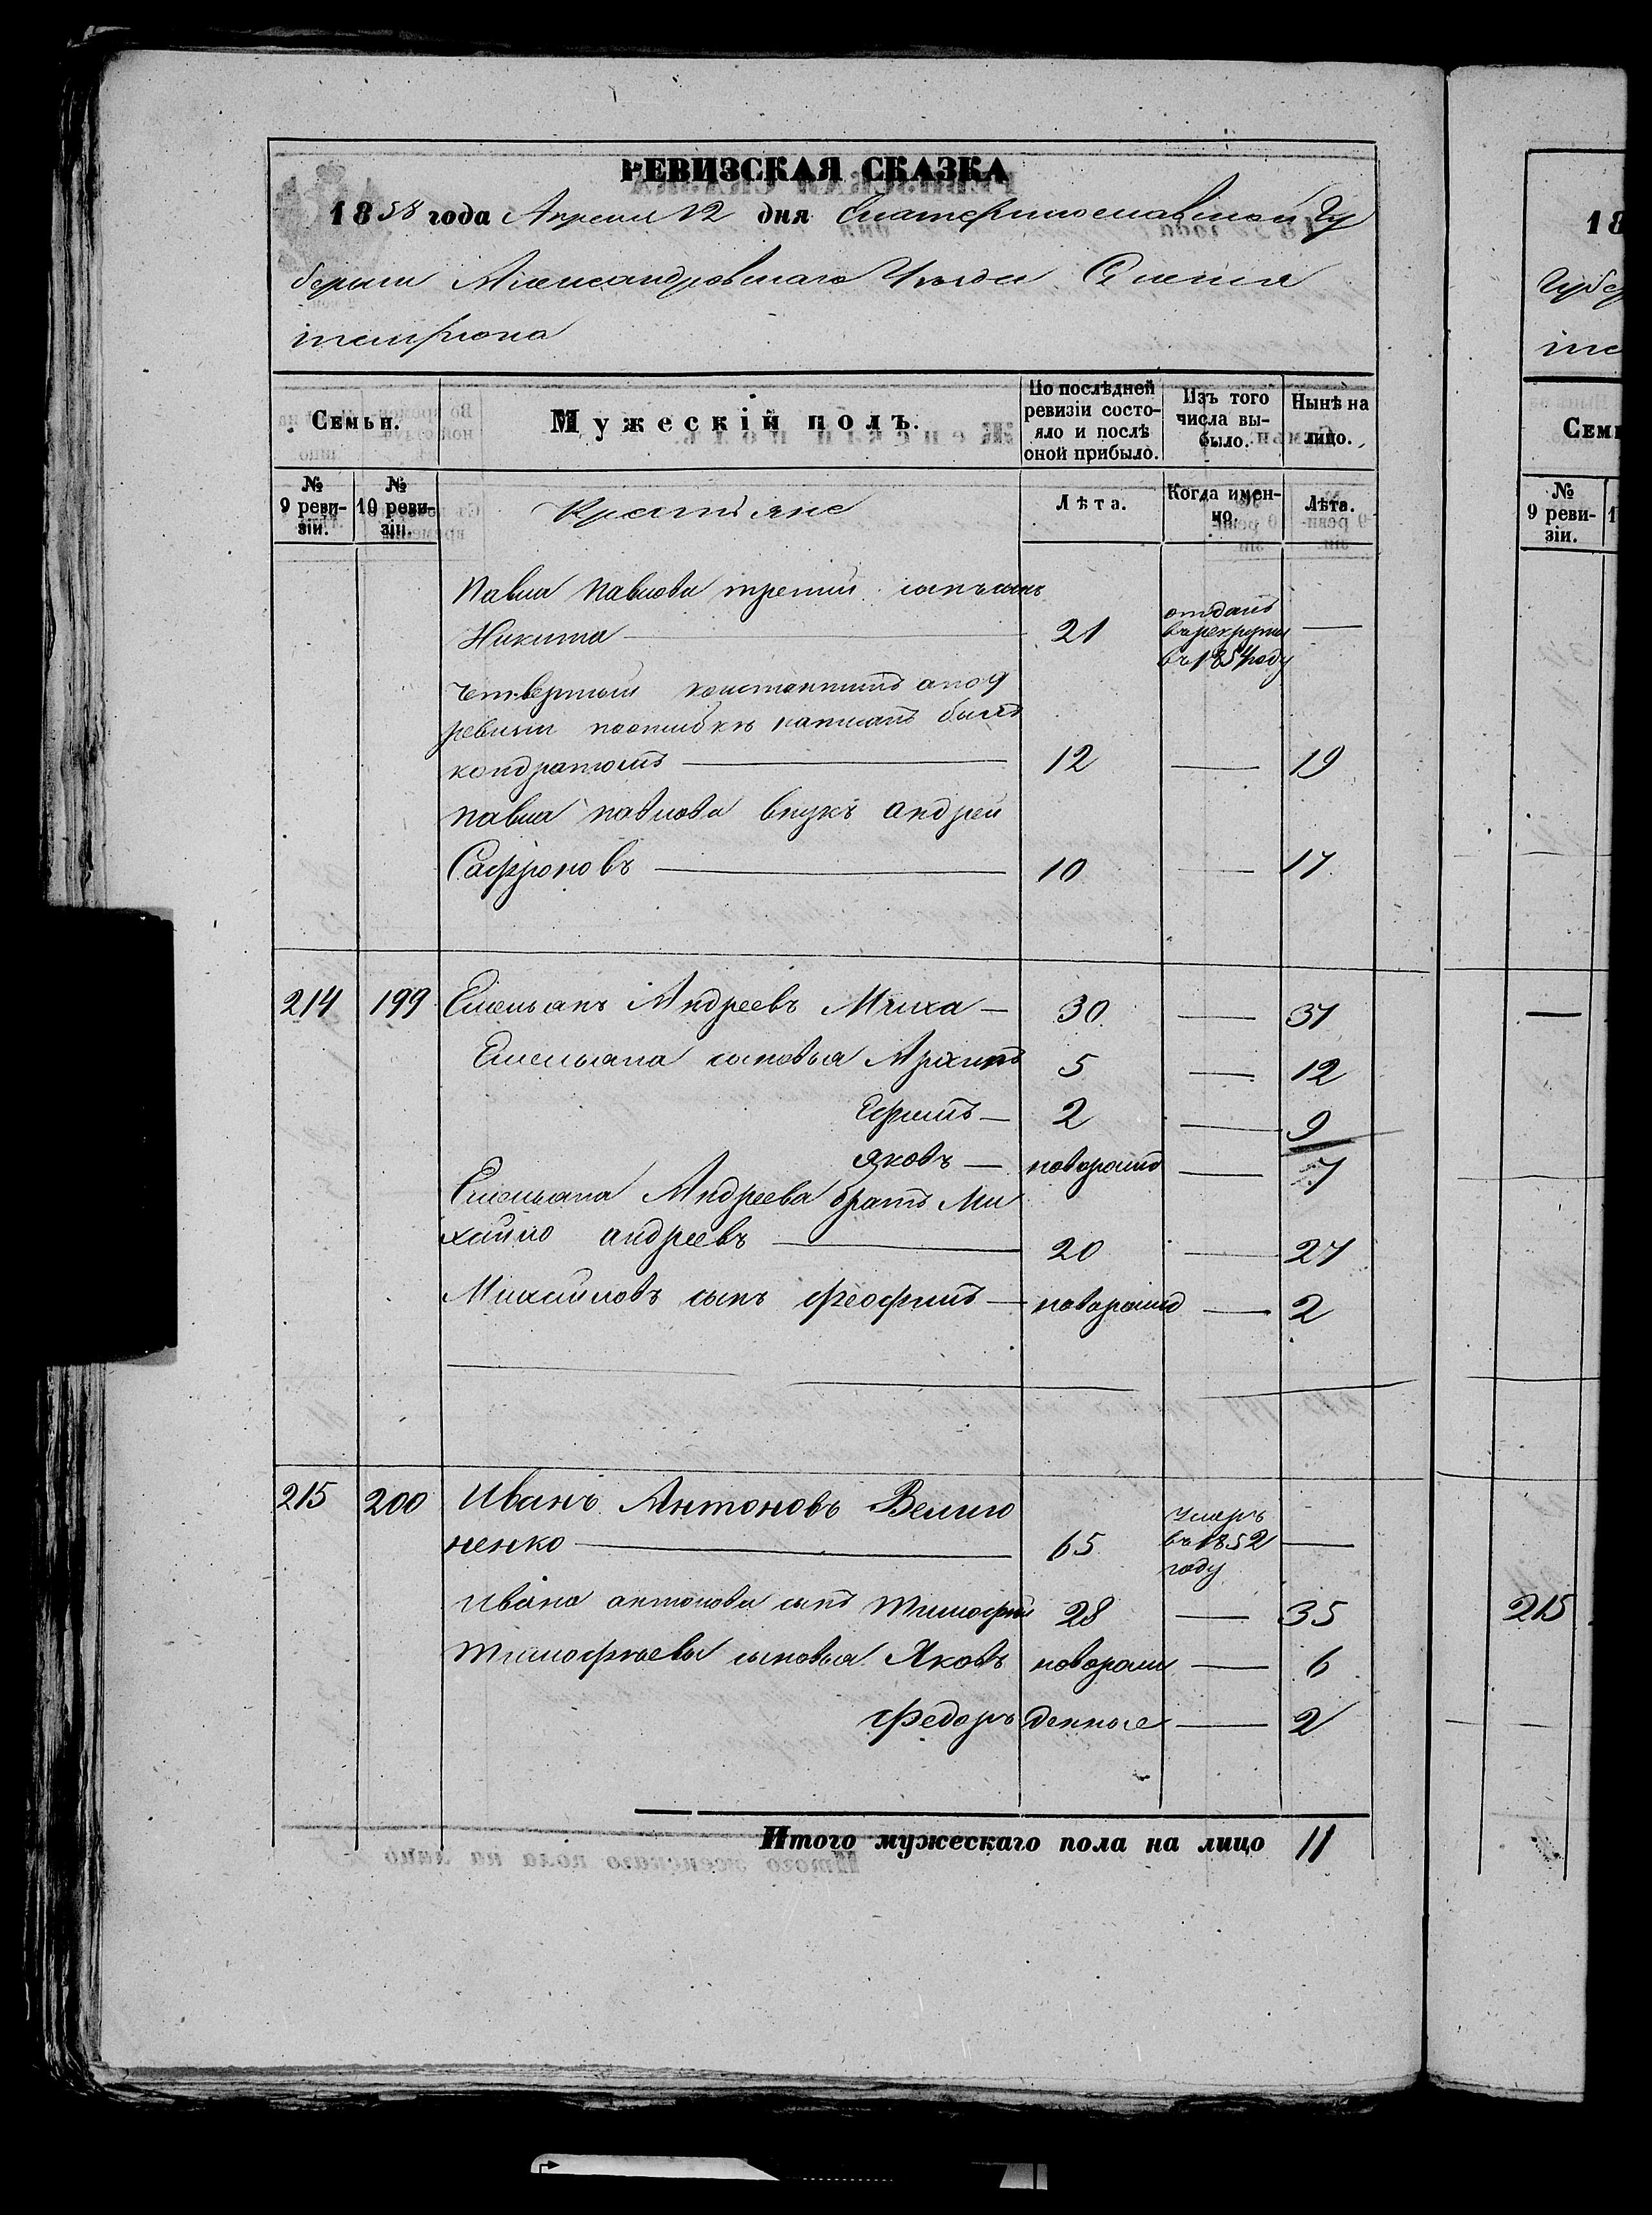 РЕВИЗСКАЯ СКАЗКА
1858 года Апреля 12 дня Екатеринославской Гу
берніи Александровскаго Уѣзда Селенія
Семьи.
Мужескій полъ.
По послѣдней ревизіи состояло и послѣ оной прибыло.
Изъ того числа выбыло.
Нынѣ на лицо.
№ 9 ревизіи.
№ 10 ревизіи.
Крестьяне
Лѣта.
Когда именно.
Лѣта.
Павла Павлова третій сынъ
Никита 21 отданъ въ рекруты въ 1854 году —
четвертый константинъ а по 9
ревизіи по ошибкѣ написанъ былъ
кондратомъ — 12 — 19
павла павлова внукъ андрей
Сафроновъ — 10 — 17
214 199 Емельянъ Андреевъ — 30 — 37
Емельяна сыновья Архипъ 5 — 12
Ефимъ — 2 — 9
Яковъ — новорожд — 7
Емельяна Андреева братъ Ми
хайло андреевъ — 20 — 27
Михайловъ сынъ феофимъ — новорожд — 2
215 200 Иванъ Антоновъ Велико
ненко — 65 умеръ въ 1852 году —
Ивана антонова сынъ Тимофей 28 — 35
Тимофѣевы сыновья Яковъ новорож — 6
Федоръ денные — 2
Итого мужескаго пола на лицо 11
18
Губе
Семь
№ 9 ревизіи.
215